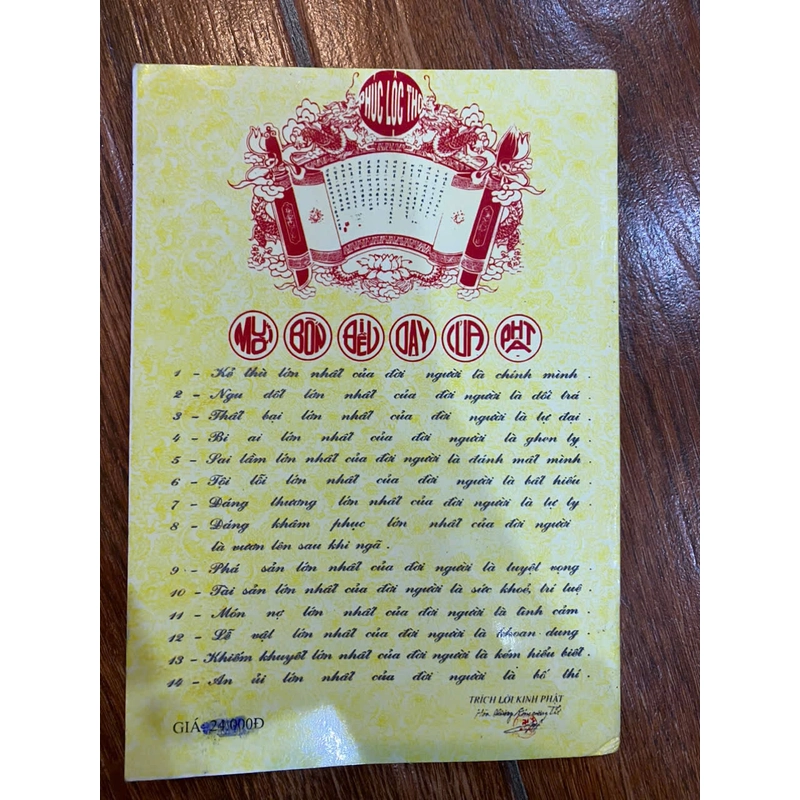 PHÚC LỘC THỌ
MƯỜI BỐN ĐIỀU DẠY CỦA PHẬT
1 - Kẻ thù lớn nhất của đời người là chính mình .
2 - Ngu dốt lớn nhất của đời người là dối trá .
3 - Thất bại lớn nhất của đời người là tự đại .
4 - Bi ai lớn nhất của đời người là ghen tỵ .
5 - Sai lầm lớn nhất của đời người là đánh mất mình .
6 - Tội lỗi lớn nhất của đời người là bất hiếu .
7 - Đáng thương lớn nhất của đời người là tự ty .
8 - Đáng khâm phục lớn nhất của đời người
là vươn lên sau khi ngã .
9 - Phá sản lớn nhất của đời người là tuyệt vọng .
10 - Tài sản lớn nhất của đời người là sức khoẻ, trí tuệ .
11 - Món nợ lớn nhất của đời người là tình cảm .
12 - Lễ vật lớn nhất của đời người là khoan dung .
13 - Khiếm khuyết lớn nhất của đời người là kém hiểu biết .
14 - An ủi lớn nhất của đời người là bố thí .
TRÍCH LỜI KINH PHẬT
GIÁ: 24.000Đ